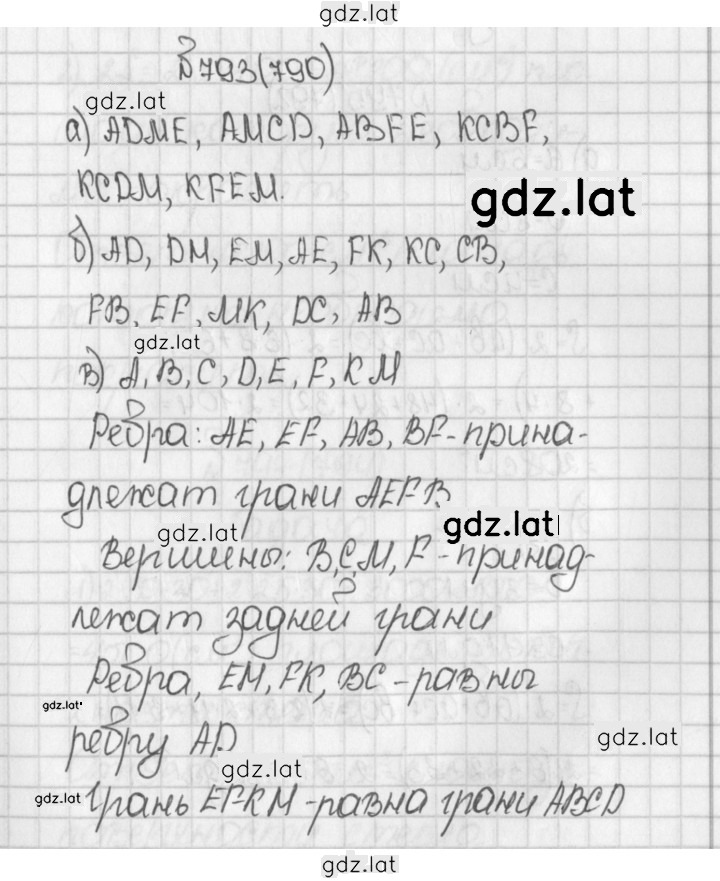 gdz.lat
№793(790)
gdz.lat
а) ADME, AMCD, ABFE, KCBF,
KCDM, KFEM.
gdz.lat
б) AD, DM, EM, AE, FK, KC, CB,
FB, EF, MK, DC, AB
gdz.lat
в) A, B, C, D, E, F, K M
Ребра: AE, EF, AB, BF-прина-
длежат грани AEFB
gdz.lat
gdz.lat
Вершины: B, C, M, F-принад-
лежат задней грани
Ребра, EM, FK, BC-равны
gdz.lat
ребру AD
gdz.lat
gdz.lat
gdz.lat
Грань EFKM-равна грани ABCD
gdz.lat